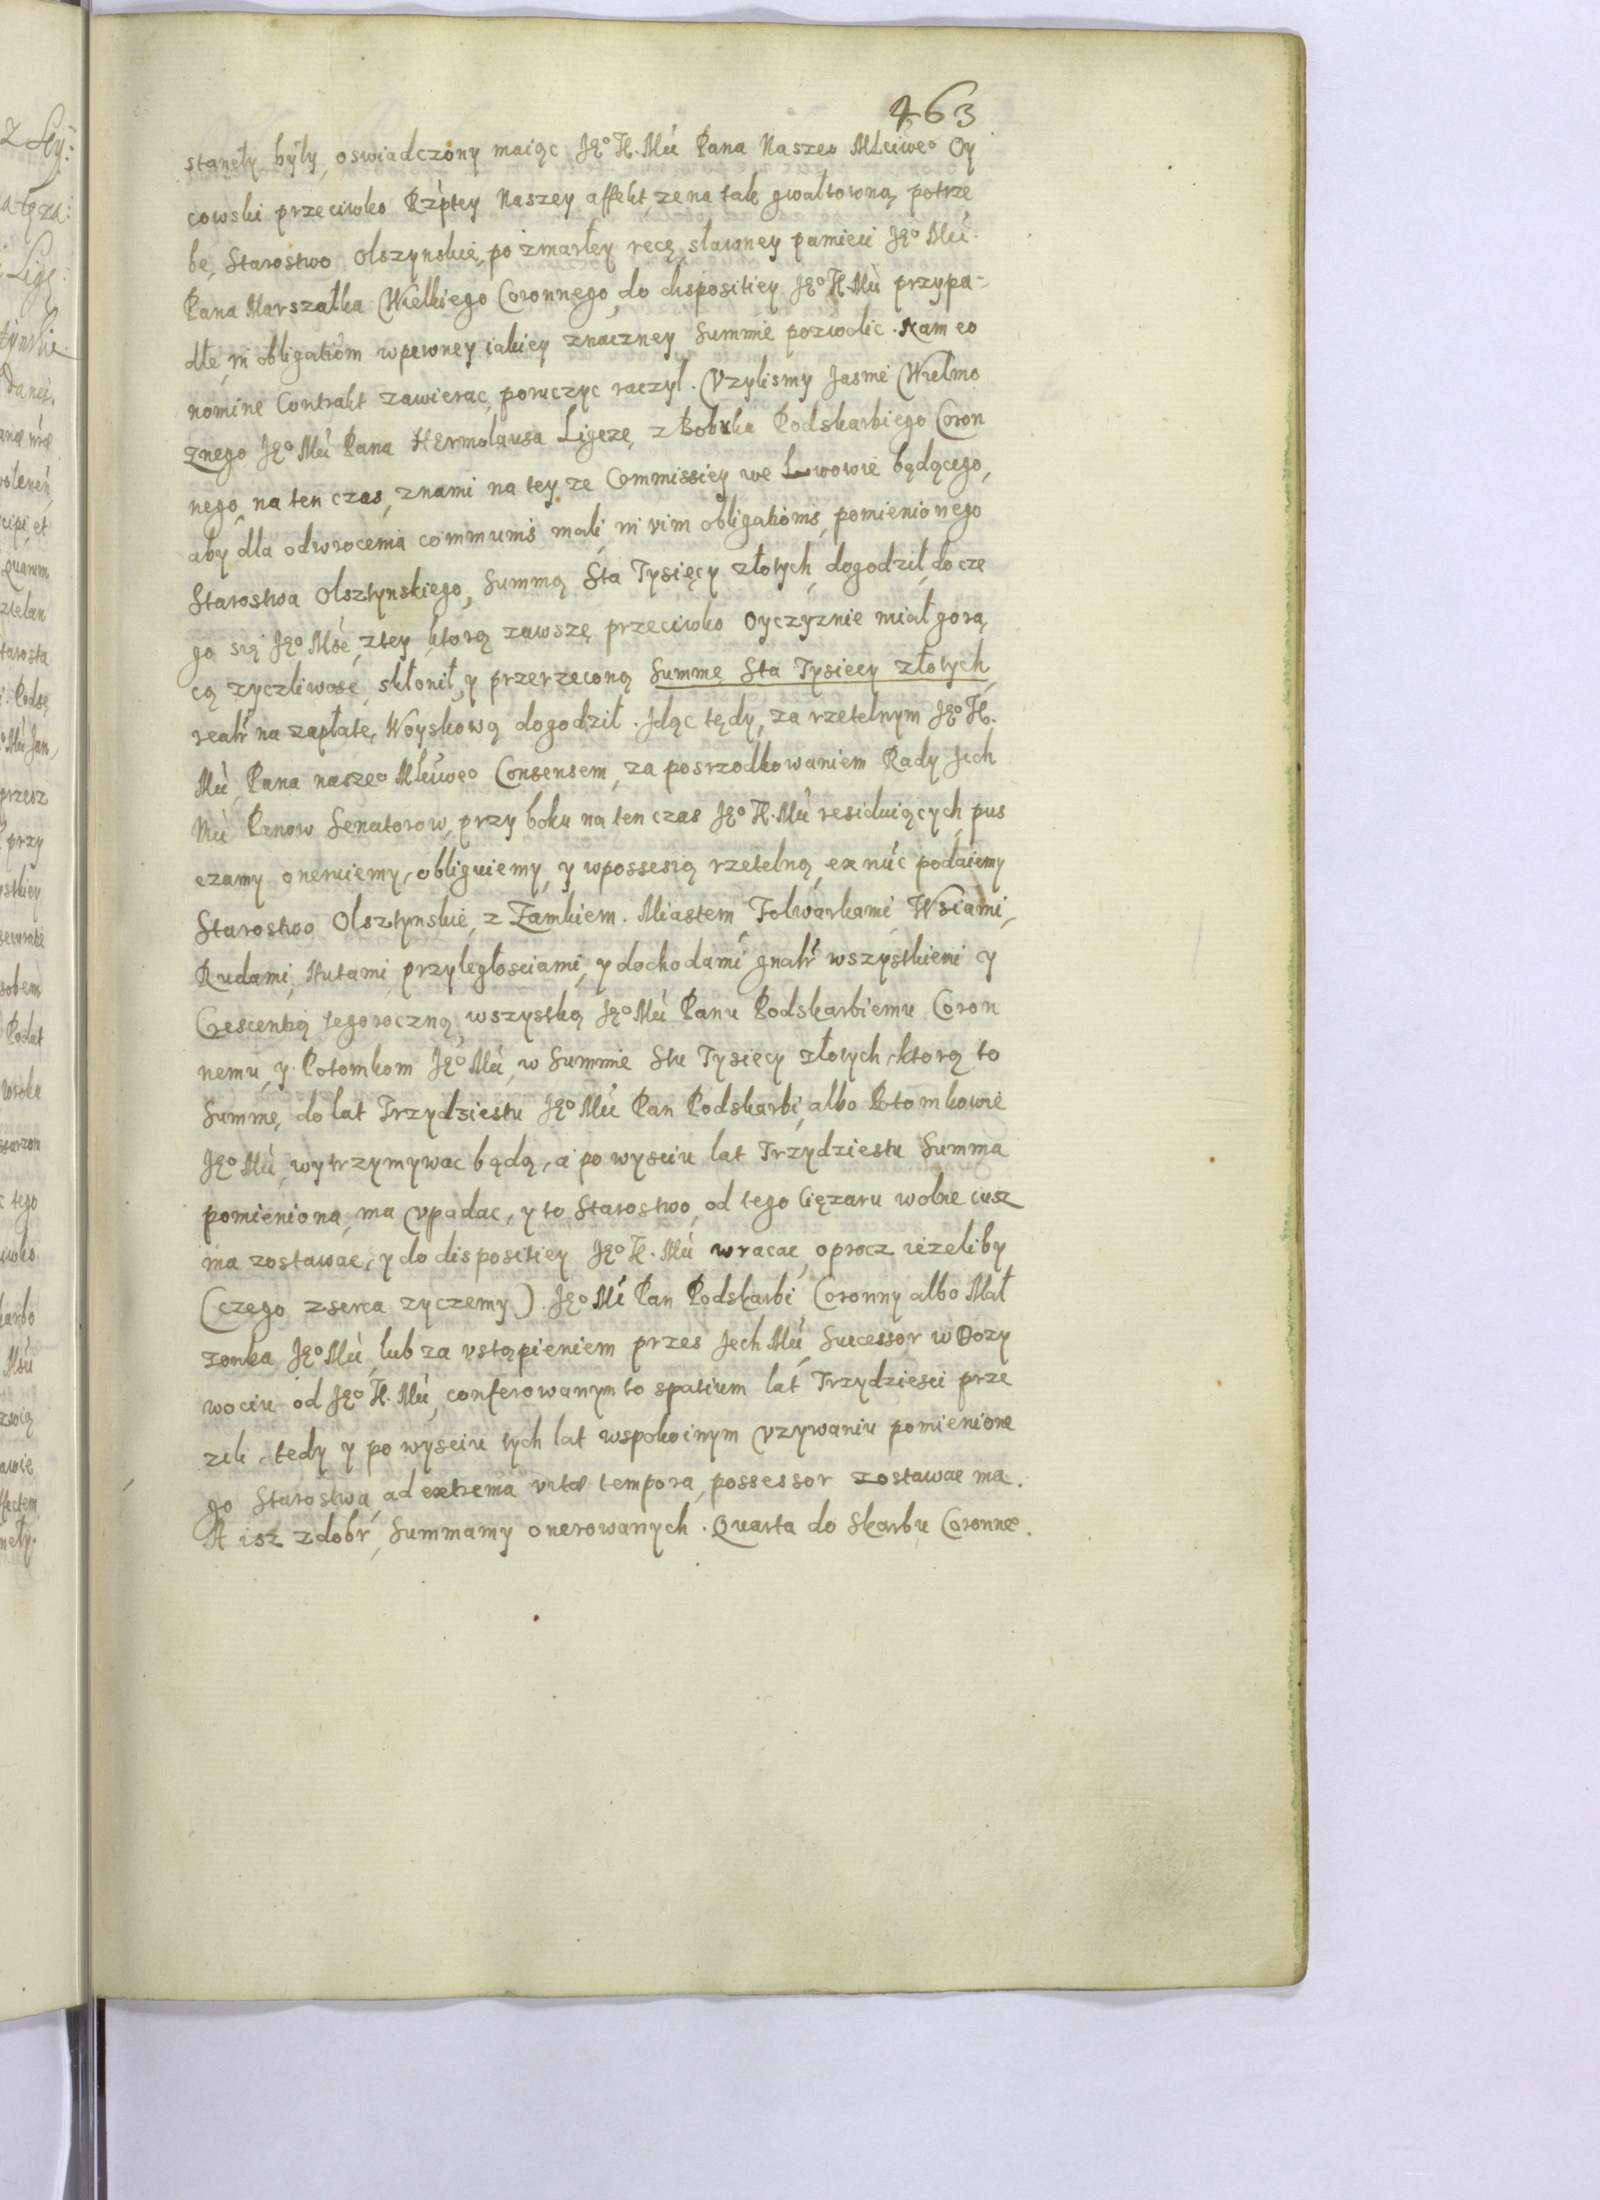 463
stanęły były, oswiadczony maiąc Jęº K. Mći Pana Naszeº Młciweº Oy
cowski przeciwko Rzptey Naszey affekt, ze na tak gwałtowną potrze
bę, Starostwo Olszynskie, po zmarłey ręcę, sławney pamieci Jęº Mći
Pana Marszałka Wielkiego Coronnego, do dispositiey Jęº K. Mći przypa-
dłe, in obligatiom wpewney iakiey znaczney Summie pozwolic. Nam eo
nomine Contrakt zawierac, poruczyc raczył. Vzylismy Jasnie Wielmo
znego Jęº Mći Pana Hermolausa Ligezę, z Bobrka Podskarbiego Coron
nego, na ten czas, znami na tey ze Commissiey we Lwowie będącego,
aby dla odwrocenia communis mali, in vim obligationis, pomienionego
Starostwa Olsztynskiego, Summą Sta Tysięcy złotych, dogodził, do cze
go się Jęº Mśc, ztey, ktorą zawszę przeciwko Oyczyznie miał gorą
cą zyczliwosc, skłonił, y przerzeconą Summę Sta Tysiecy złotych,
realr na zapłatę, Woyskową dogodził. Jdąc tędy, za rzetelnym Jęº K.
Mći, Pana naszeº Młciweº Consensem, za posrzodkowaniem Rady Jech
Mći Panow Senatorow, przy boku na ten czas Jęº K. Mći residuiących, pus
czamy oneruiemy, obliguiemy, y wpossesią rzetelną, ex nuc podaiemy
Starostwo Olsztynskie, z Zamkiem. Miastem, Folwarkami, Wsiami,
Rudami, Hutami, przyległosciami, y dochodami gnalr wszystkiemi y
Crescentią tegoroczną, wszystką Jęº Mći Panu Podskarbiemu Coron
nemu, y Potomkom Jęº Mći, w Summie Stu Tysięcy złotych, ktorą to
Summę, do lat Trzydziestu Jęº Mći Pan Podskarbi, albo Potomkowie
Jęº Mći, wytrzymywac bądą, a po wysciu lat Trzydziestu Summa
pomieniona, ma vpadac, y to Starostwo, od tego Ciężaru wolne iusz
ma zostawac, y do dispositiey Jęº K. Mći wracac, oprocz iezeliby
(czego zserca zyczemy) Jęº Mć Pan Podskarbi Coronny albo Mał
zonka Jęº Mći, lub za vstąpieniem przes Jech Mći, Successor w Dozy
wociu od Jęº K. Mći, conferowanym to spatium lat Trzydziesci prze
zili, tedy y po wysciu tych lat wspokoinym vzywaniu pomienione
go Starostwa, ad extrema vitæ tempora, possessor zostawac ma.
A isz zdobr, Summamy onerowanych. Quarta do Skarbu Coronneº.